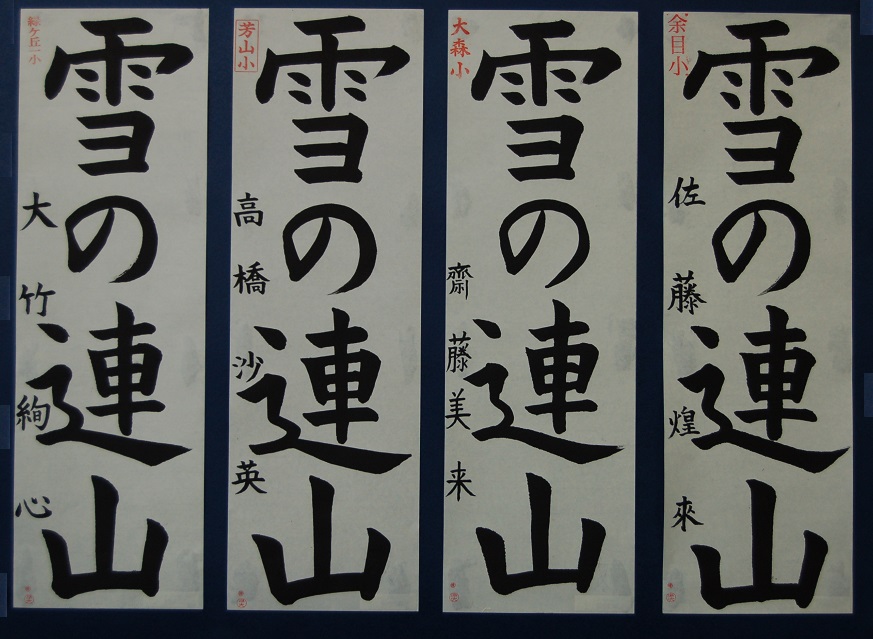 余目小
雪の連山
佐藤煌來
大森小
雪の連山
齋藤美来
芳山小
雪の連山
高橋沙英
緑ケ丘一小
雪の連山
大竹絢心